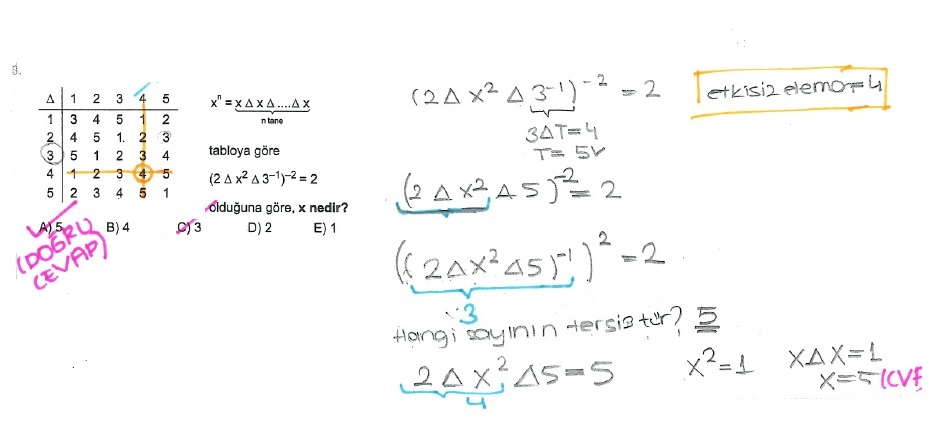 8.
Δ 1 2 3 4 5
1 3 4 5 1 2
2 4 5 1. 2 3
3 5 1 2 3 4
4 1 2 3 4 5
5 2 3 4 5 1
xⁿ = x Δ x Δ....Δ x
n tane
tabloya göre
(2 Δ x² Δ 3⁻¹)⁻² = 2
olduğuna göre, x nedir?
A) 5 B) 4 C) 3 D) 2 E) 1
(DOĞRU
CEVAP)
(2 Δ x² Δ 3⁻¹)⁻² = 2
etkisiz eleman=4
3ΔT=4
T= 5
(2 Δ x² Δ 5)⁻² = 2
((2Δx² Δ5)⁻¹)² = 2
3
Hangi sayının tersi 3 tür? 5
2 Δ x² Δ5=5
4
x²=1
xΔx=1
x=5 (CVP